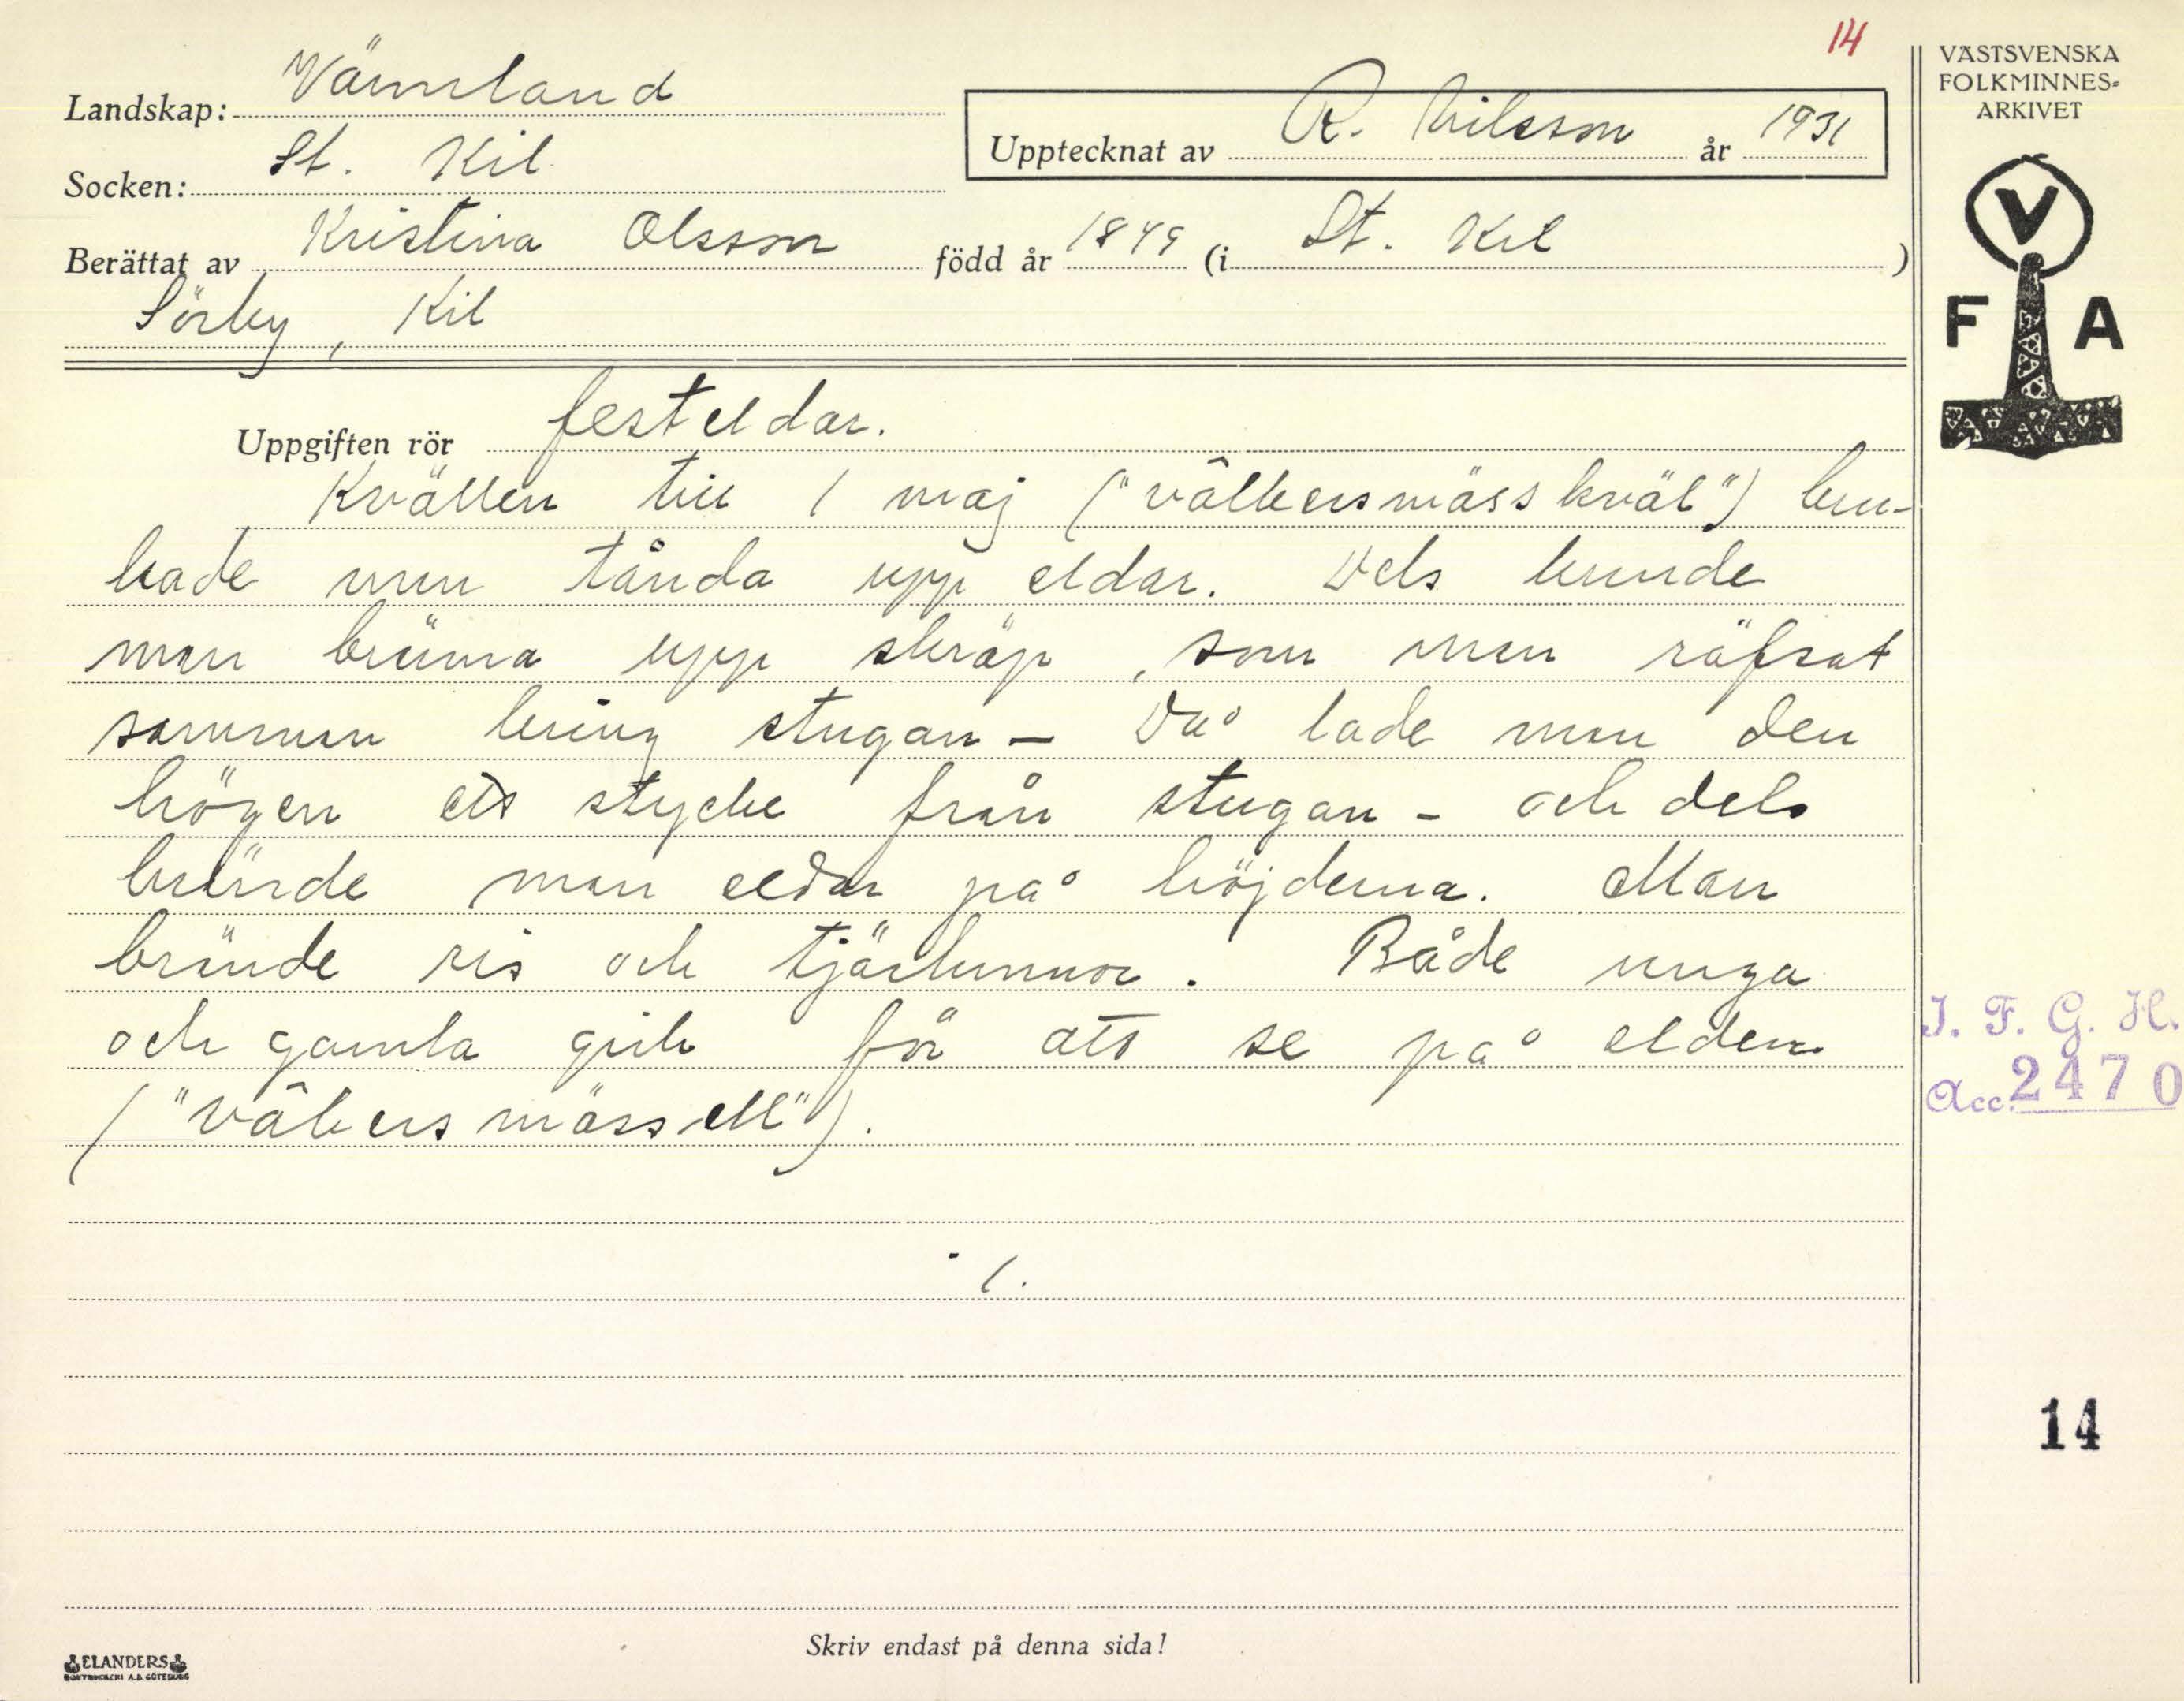 14
VÄSTSVENSKA
FOLKMINNES-
ARKIVET
Landskap: Värmland
Upptecknat av R. Nilsson år 1931
Socken: St. Kil
Berättat av Kristina Olsson född år 1849 (i St. Kil)
Sörby, Kil
V
F A
Uppgiften rör festeldar.
Kvällen till 1 maj ("vâlbersmässkväl") bru-
kade man tända upp eldar. Dels kunde
man bränna upp skräp, som man räfsat
samman kring stugan – Då lade man den
högen ett stycke från stugan – och dels
brände man eldar på höjderna. Man
brände ris och tjärtunnor. Både unga
och gamla gick för att se på elden
("vâbersmässell").
I. F. G. H.
Acc. 2470
1.
14
Skriv endast på denna sida!
ELANDERS
BOKTRYCKERI A.B. GÖTEBORG